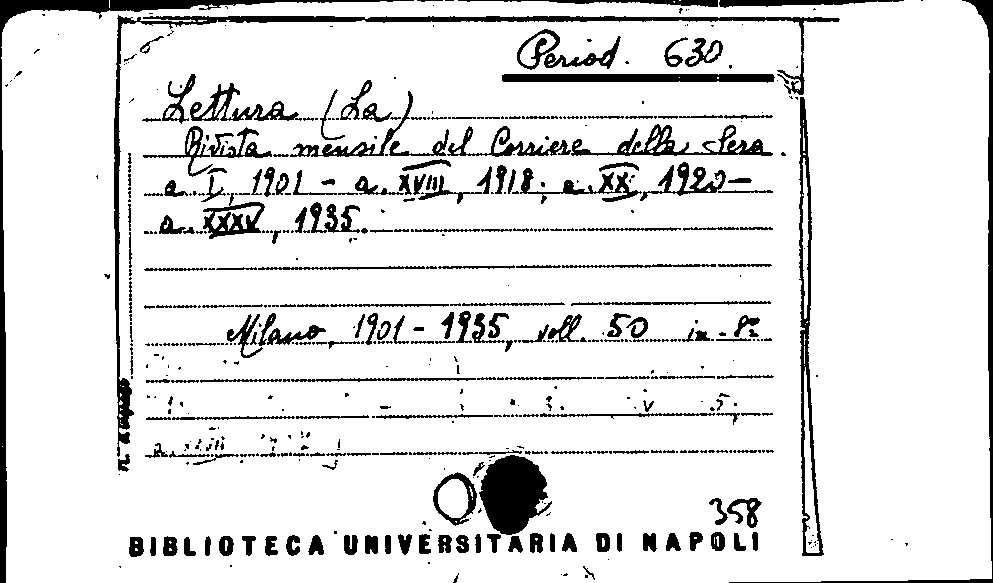 Period. 630.
Lettura (La)
Rivista mensile del Corriere della Sera.
a. I, 1901 - a. XVIII, 1918; a. XX, 1920 -
a. XXXV, 1935.
Milano, 1901 - 1935, voll. 50 in-8º
358
BIBLIOTECA UNIVERSITARIA DI NAPOLI